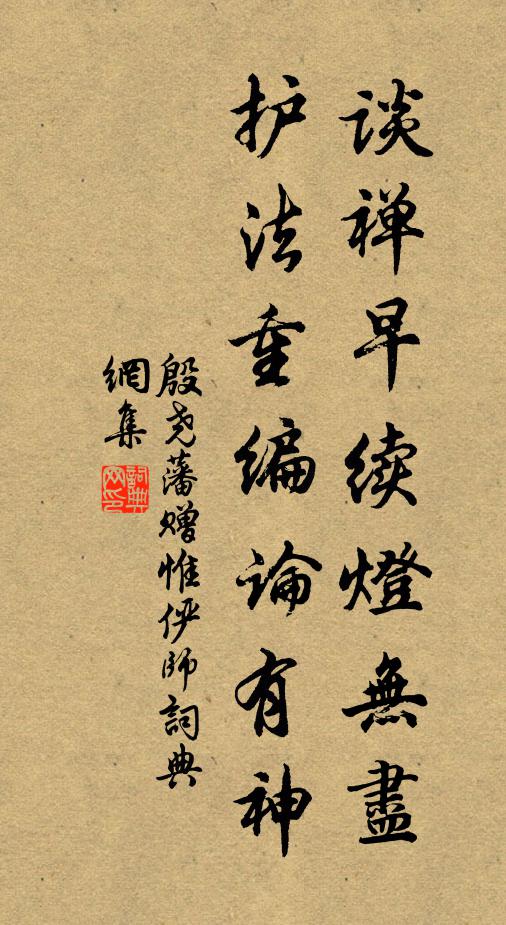 谈禅早续燈無盡
护法重编论有神
殷尧藩赠惟俨師詞典
網集
詞典网印